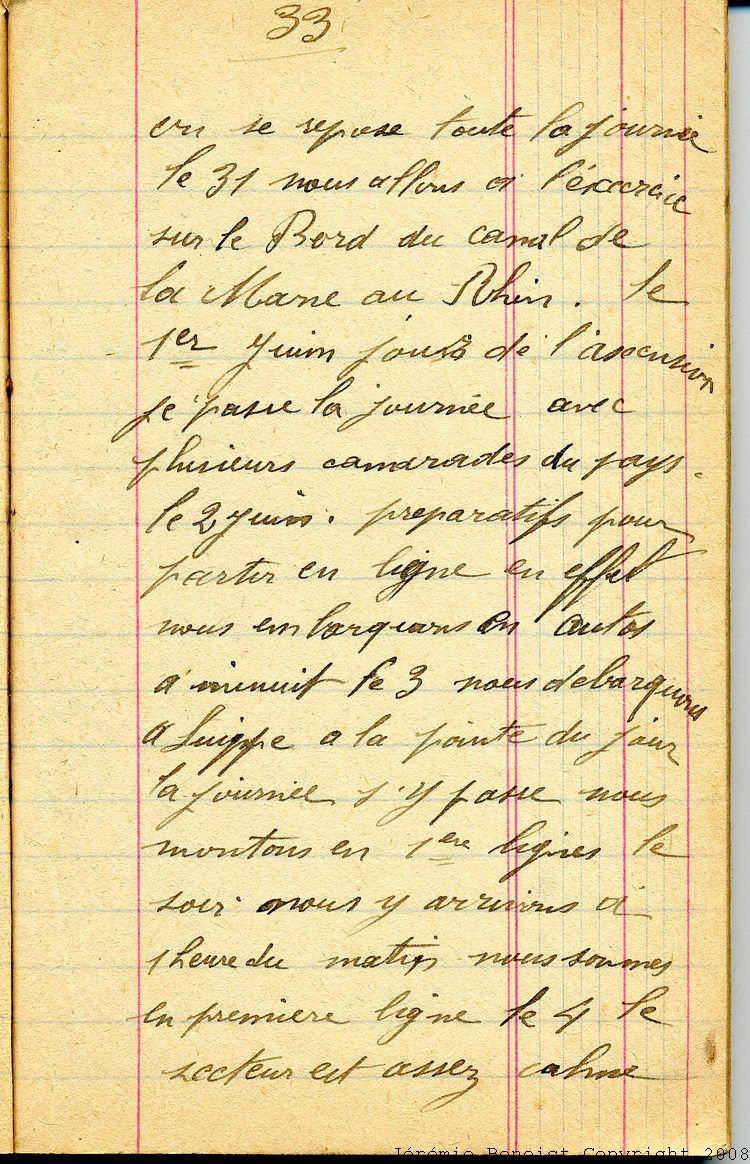 33
on se repose toute la journée
le 31 nous allons a l'éxcercice
sur le Bord du canal de
la Marne au Rhin. le
1er Juin jours de l'ascension
je passe la journée avec
plusieurs camarades du pays.
le 2 juin. preparatifs pour
partir en ligne en effet
nous embarquons en autos
a minuit le 3 nous debarquons
a Suippe a la pointe du jour
la journée s'y passe nous
montons en 1ere lignes le
soir nous y arrivons a
1 heure du matin nous sommes
en première ligne le 4 le
secteur est assez calme
Jérémie Benoist Copyright 2008